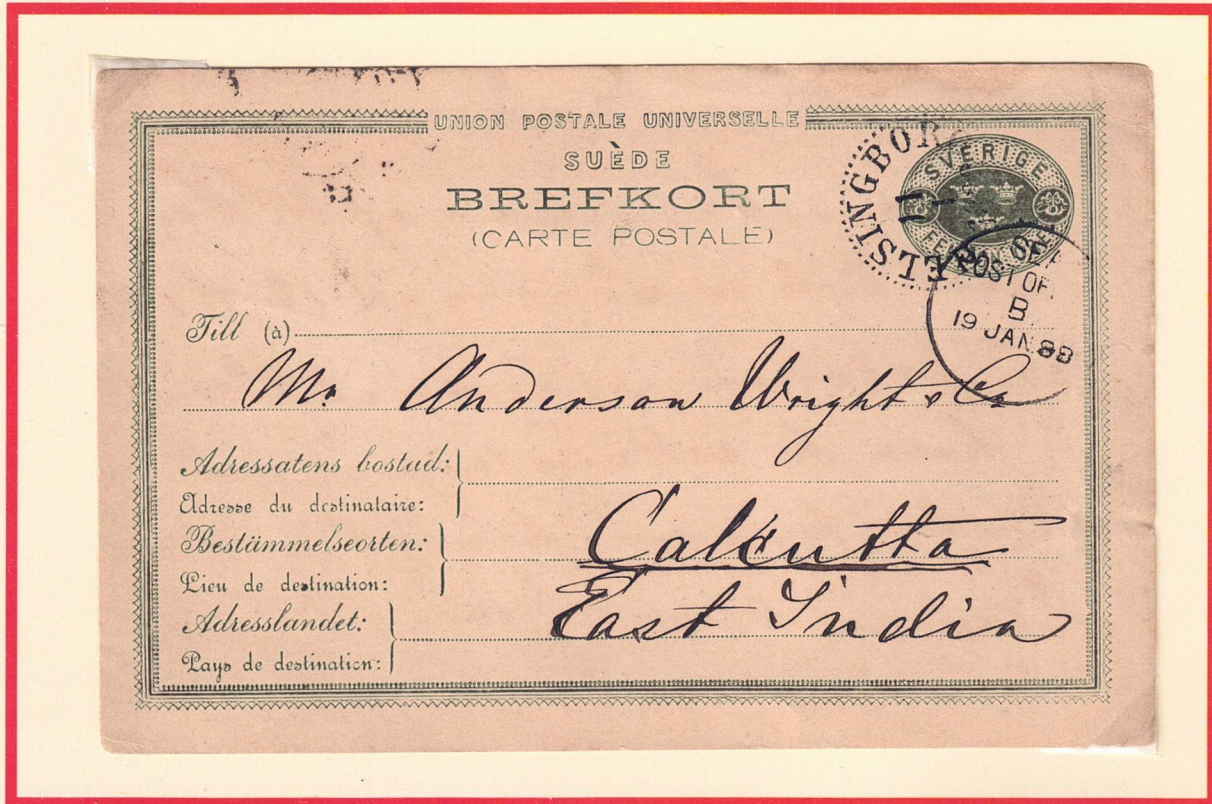 UNION POSTALE UNIVERSELLE
SUÈDE
BREFKORT
(CARTE POSTALE)
SVERIGE
FEM
ELSINGBOR
11
1
POST OF
B
19 JAN 88
Till (à)
Mr Anderson Wright & Co
Adressatens bostad:
Adresse du destinataire:
Bestämmelseorten:
Lieu de destination:
Calcutta
Adresslandet:
East India
Pays de destination: